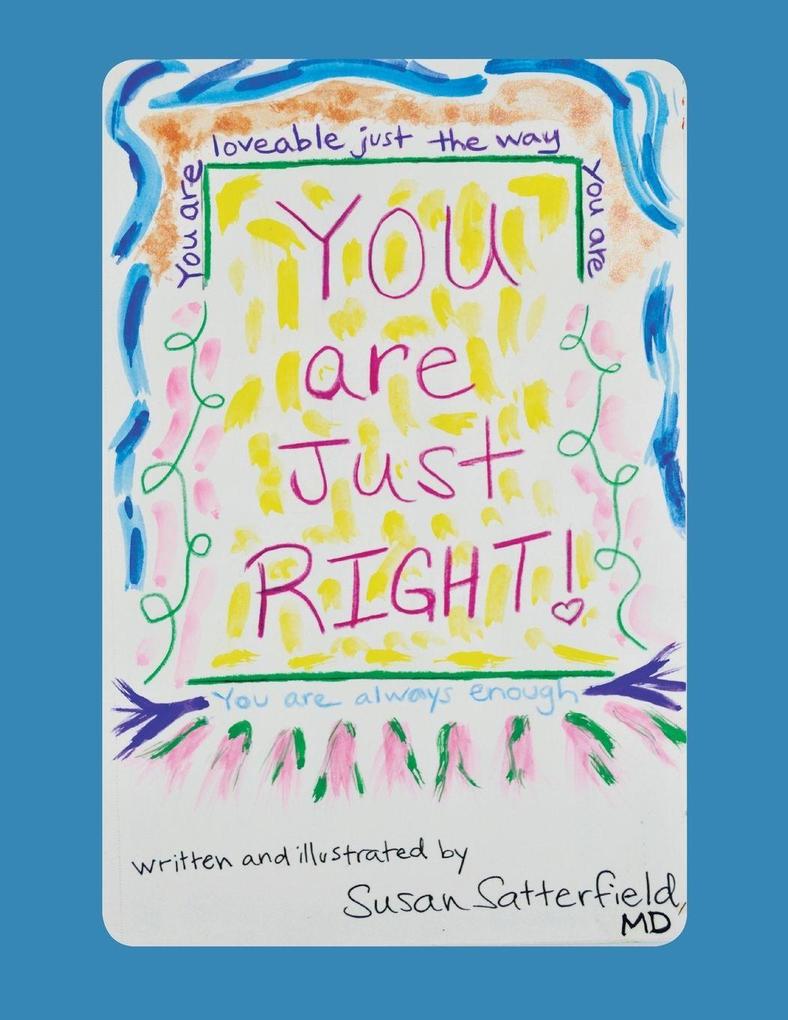 You are
loveable just the way
You are
YOU
are
Just
RIGHT!
You are always enough
written and illustrated by
Susan Satterfield,
MD